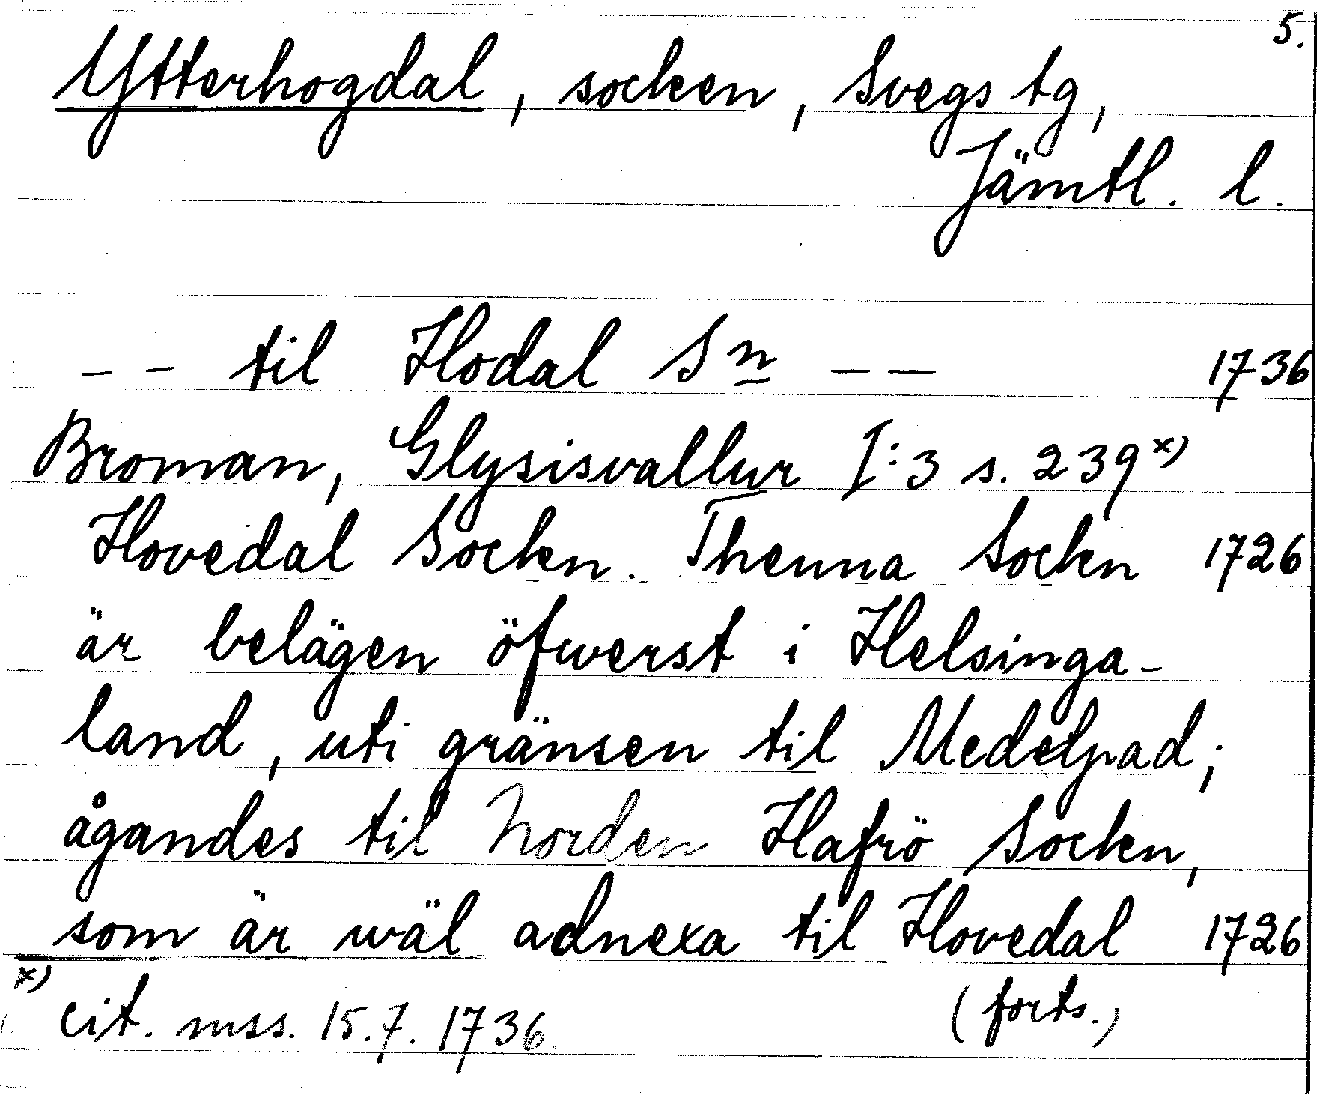 5.
Ytterhogdal, socken, Svegs tg,
Jämtl. l.
– – til Hodal Sn – – 1736
Broman, Glysisvallur I:3 s. 239 x)
Hovedal Sockn. Thenna Sockn 1726
är belägen öfwerst i Helsinga-
land, uti gränsen til Medelpad;
ågandes til Norden Hafrö Sockn,
som är wäl adnexa til Hovedal 1726
x) cit. mss. 15.7. 1736 (forts.)